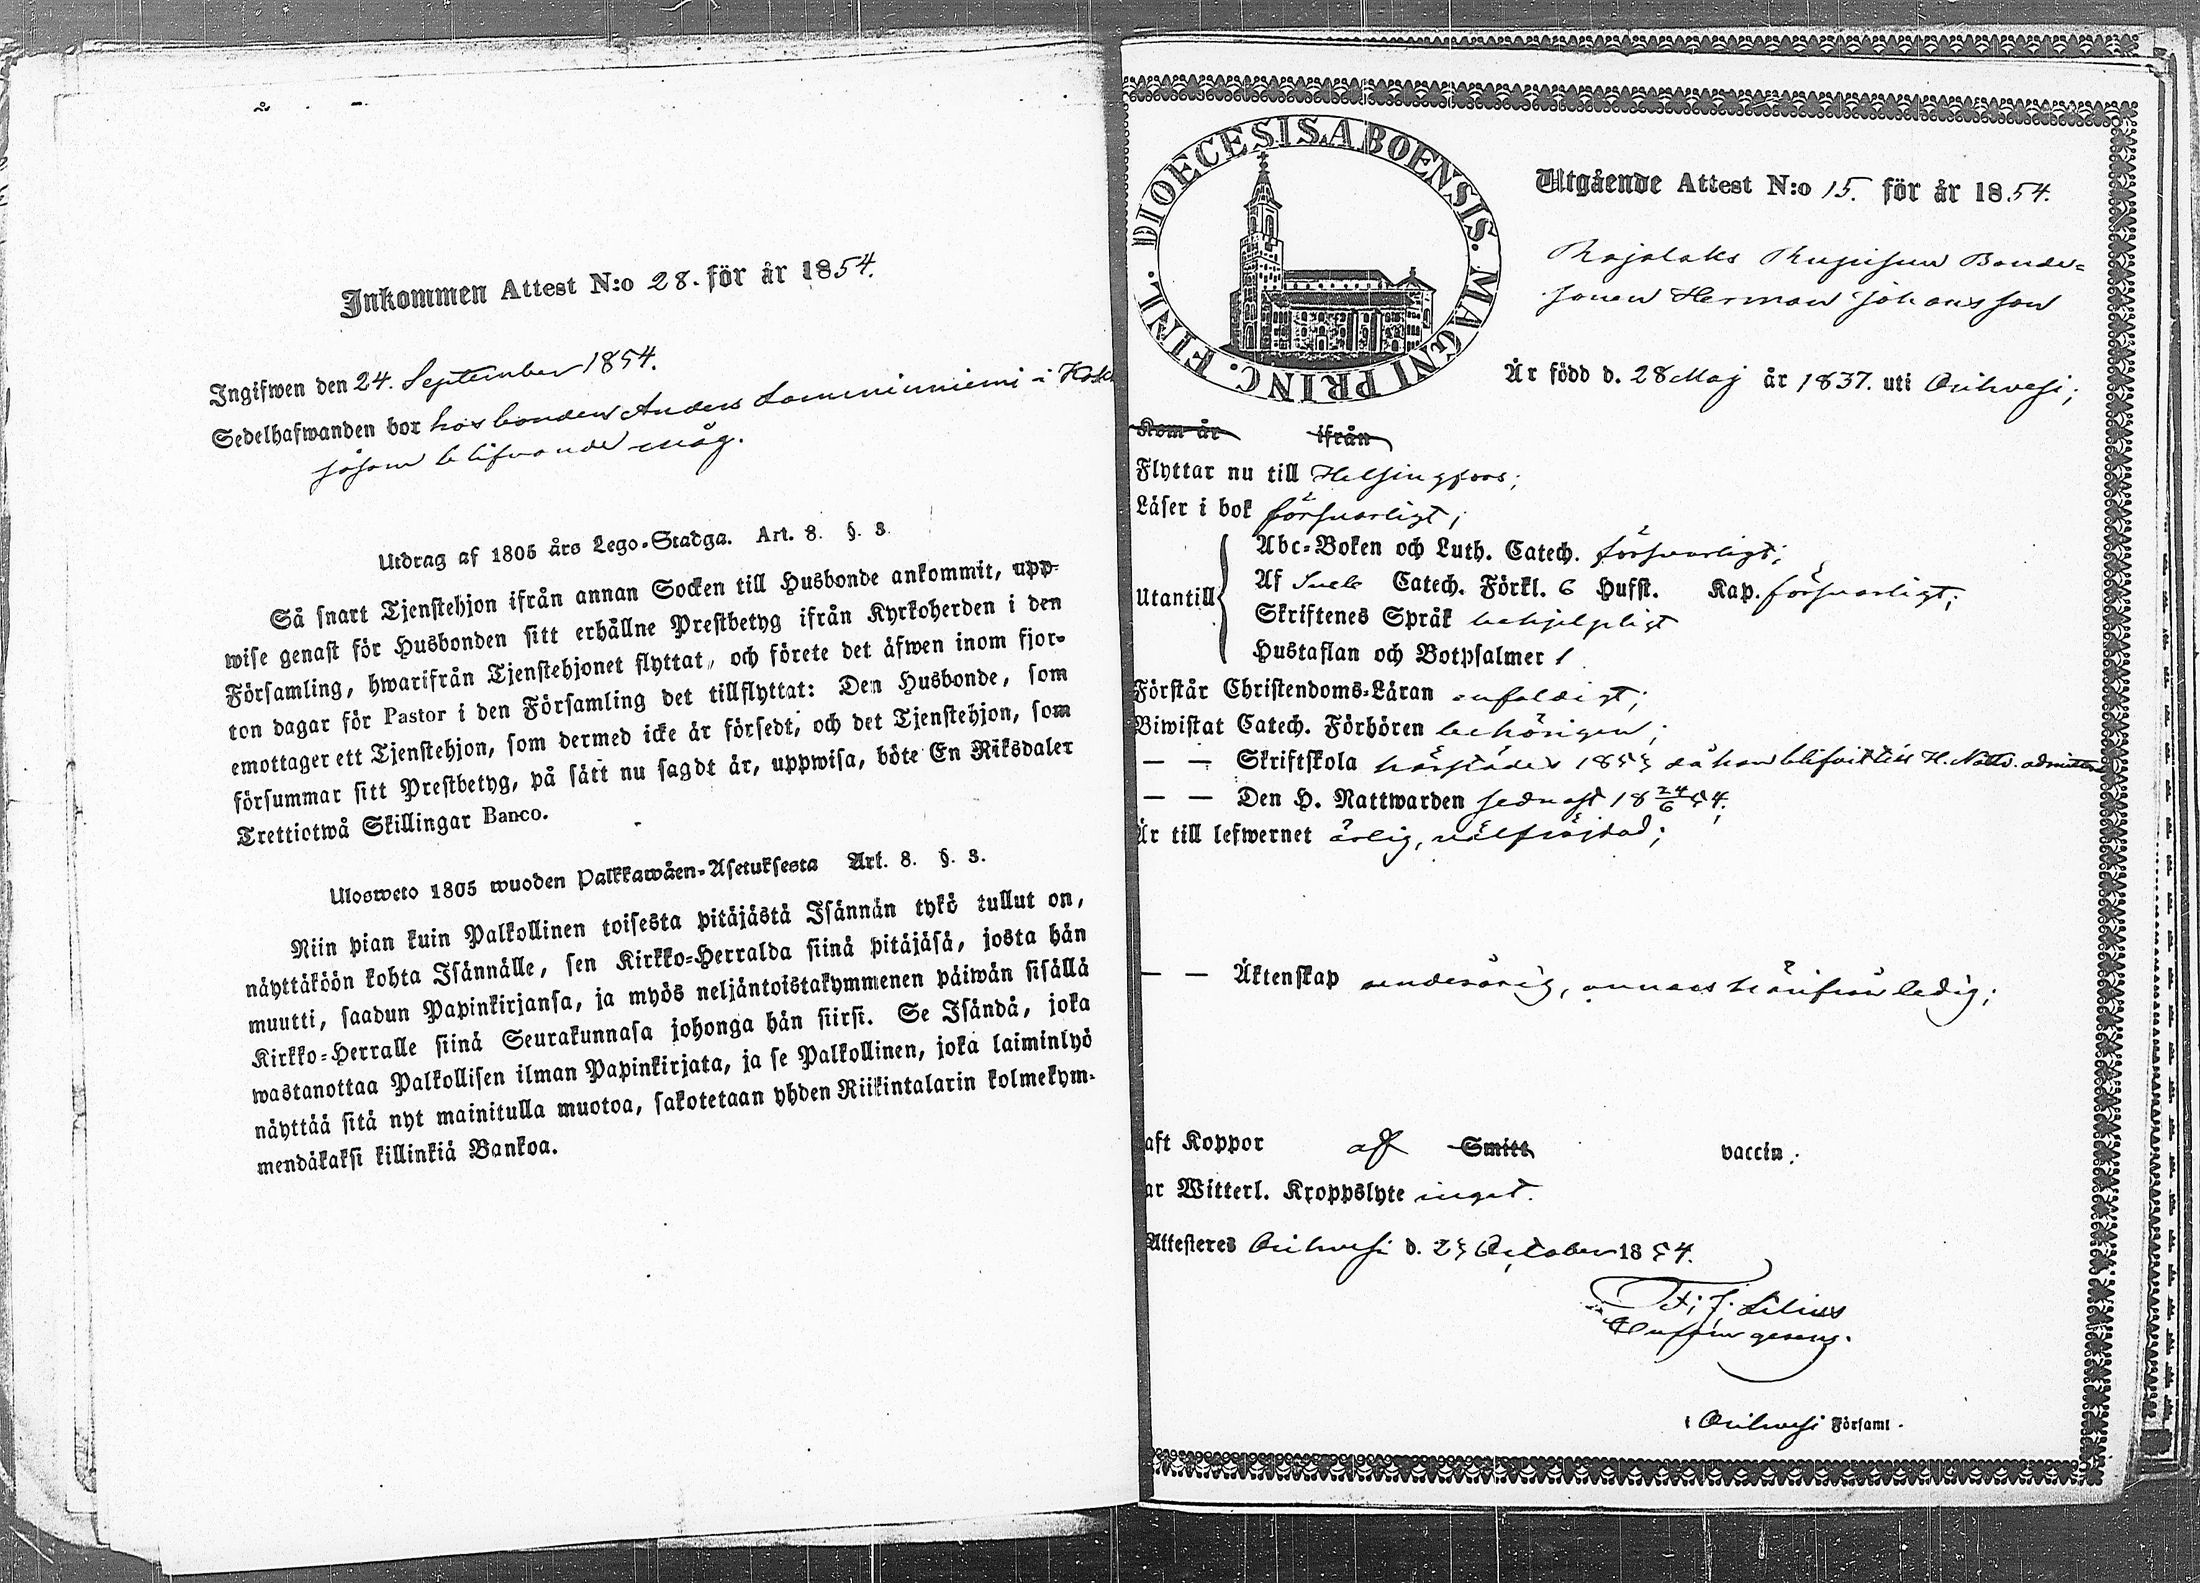 Inkommen Attest N:o 28. för år 1854.
Ingifwen den 24. September 1854.
Sedelhafwanden bor hos bonden Anders Lamminniemi i
såsom blifvande måg.
Utdrag af 1805 års Lego-Stadga. Art. 8. §. 3.
Så snart Tjenstehjon ifrån annan Socken till Husbonde ankommit, upp-
wise genast för Husbonden sitt erhållne Prestbetyg ifrån Kyrkoherden i den
Församling, hwarifrån Tjenstehjonet flyttat, och förete det äfwen inom fjor-
ton dagar för Pastor i den Församling det tillflyttat: Den Husbonde, som
emottager ett Tjenstehjon, som dermed icke är försedt, och det Tjenstehjon, som
försummar sitt Prestbetyg, på sätt nu sagdt är, uppwisa, böte En Riksdaler
Trettiotwå Skillingar Banco.
Ulosweto 1805 wuoden Palkkawäen-Asetuksesta Art. 8. §. 3.
Niin pian kuin Palkollinen toisesta pitäjästä Isännän tykö tullut on,
näyttäköön kohta Isännälle, sen Kirkko-Herralda siinä pitäjäsä, josta hän
muutti, saadun Papinkirjansa, ja myös neljäntoistakymmenen päiwän sisällä
Kirkko-Herralle siinä Seurakunnasa johonga hän siirsi. Se Isändä, joka
wastanottaa Palkollisen ilman Papinkirjata, ja se Palkollinen, joka laiminlyö
näyttää sitä nyt mainitulla muotoa, sakotetaan yhden Riikintalarin kolmekym-
mendäkaksi killinkiä Bankoa.
DIOECESIS ABOENSIS. MAGNI PRINC. FINL.
Utgående Attest N:o 15. för år 1854.
Bonde-
sonen Herman Johansson
Är född d. 28 Maj år 1837. uti Orihvesi;
Kom år ifrån
Flyttar nu till Helsingfors;
Läser i bok försvarligt;
Abc-Boken och Luth. Catech. försvarligt;
Utantill Af Sveb Catech. Förkl. 6 Hufst. Kap. försvarligt;
Skriftenes Språk behjelpligt
Hustaflan och Botpsalmer
Förstår Christendoms-Läran enfaldigt;
Biwistat Catech. Förhören behörigen;
— — Skriftskola härstädes 1853 då han blifvit till H. Nattv.
— — Den H. Nattwarden sednast 18 24/6 54;
Är till lefwernet ärlig, välfräjdad;
— — Äktenskap underårig, annars härifrån ledig;
aft Koppor af Smitt vaccin;
ar Witterl. Kroppslyte inget.
Attesteres Orihvesi d. 25 October 1854.
Lilius
i Orihvesi Församl.